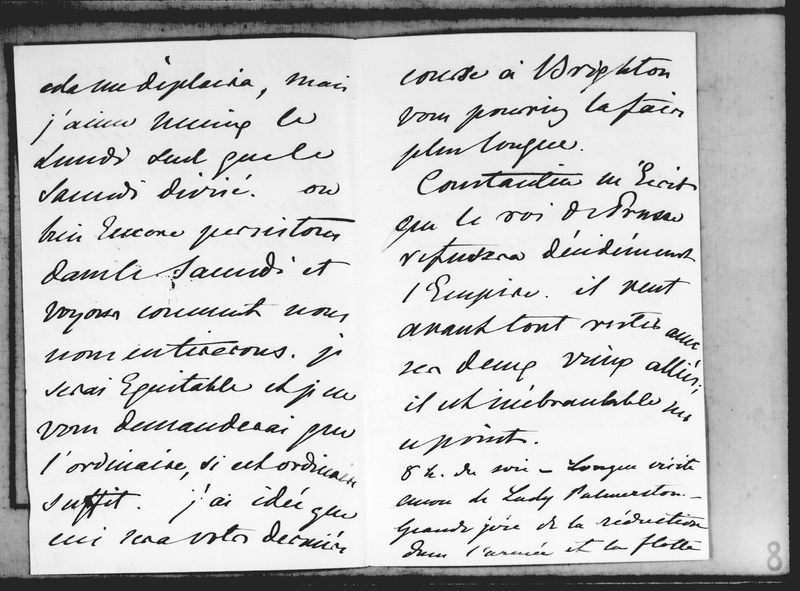 cela me déplaira, mais
j'aime mieux le
Lundi seul que le
Samedi divisé. ou
bien Encore persistons
dans le Samedi et
voyons comment nous
nous en tirerons. je
serai Equitable et je ne
vous demanderai que
l'ordinaire, si cet ordinaire
suffit. j'ai idée que
ceci sera votre dernière
course à Brighton
vous pourriez la faire
plus longue.
Constantin m'Ecrit
que le roi de Prusse
refusera décidément
l'Empire. il veut
avant tout rester avec
ses deux vieux alliés;
il est inébranlable sur
ce point.
8 h. du soir - Longue visite
encore de Lady Palmerston -
Grande joie de la réduction
dans l'armée et la flotte
8